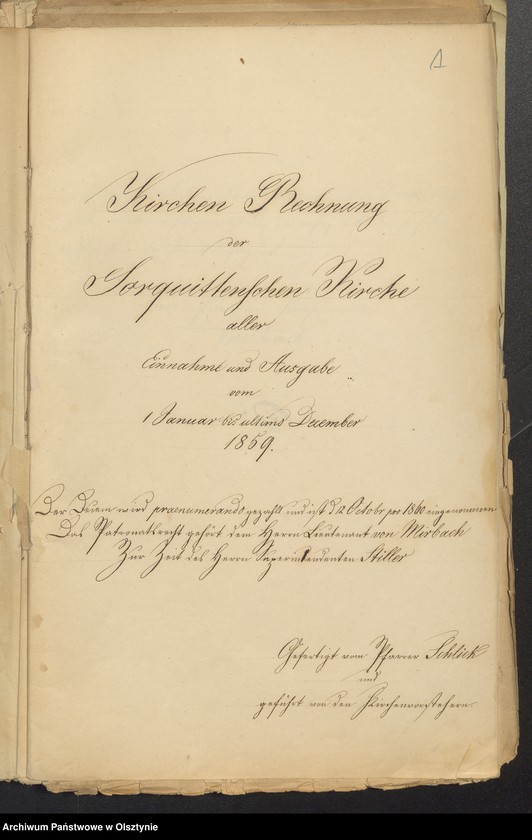 1
Kirchen Rechnung
der
Sorquittenschen Kirche
aller
Einnahme und Ausgabe
vom
1 Januar bis ultimo December
1859.
Der Decem wird praenumerando gezahlt und ist d 12 Octobr pro 1860 eingenommen
Das Patronatsrecht gehört dem Herrn Lieutenant von Mirbach
Zur Zeit des Herrn Superintendenten Stiller
Gefertigt vom Pfarrer Schlick
und
geführt von den Kirchenvorstehern.
Archiwum Państwowe w Olsztynie